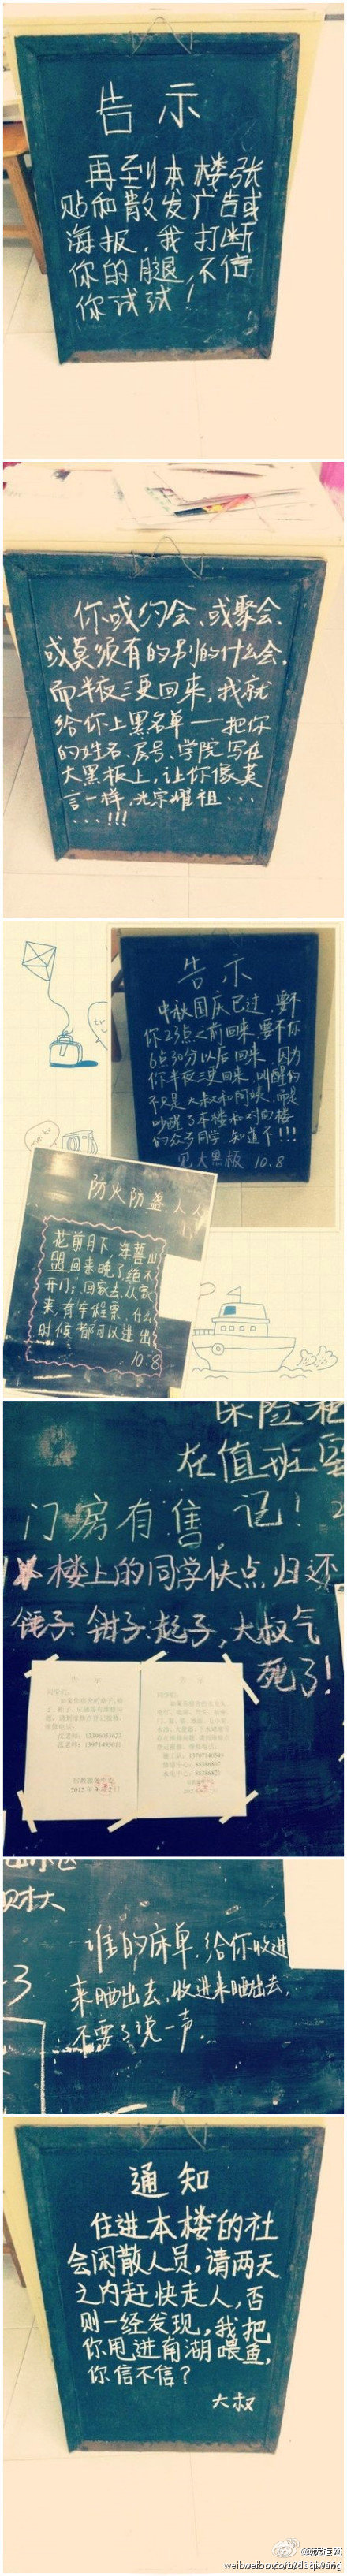 告示
再到本楼张
贴和散发广告或
海报，我打断
你的腿，不信
你试试！
你或约会、或聚会、
或莫须有的别的什么会，
而半夜三更回来，我就
给你上黑名单——把你
的姓名、房号、学院写在
大黑板上，让你像莫
言一样，光宗耀祖...
...!!!
告示
中秋国庆已过，要不
你23点之前回来，要不你
6点30分以后回来，因为
你半夜三更回来，叫醒的
不只是大叔和阿姨，而是
吵醒了本楼和对面楼
的众多同学，知道不!!!
见大黑板 10.8
防火防盗人人
花前月下，海誓山
盟，回来晚了，绝不
开门；回家去，从家
来，有车程票，什么
时候都可以进出
10.8
保险柜
在值班室
门房有售。
记！
楼上的同学快点归还
锤子、钳子、起子，大叔气
死了！
2012年9月
财大
谁的床单，给你收进
来晒出去，收进来晒出去，
不要了说一声。
通知
住进本楼的社
会闲散人员，请两天
之内赶快走人，否
则一经发现，我把
你甩进南湖喂鱼，
你信不信？
大叔